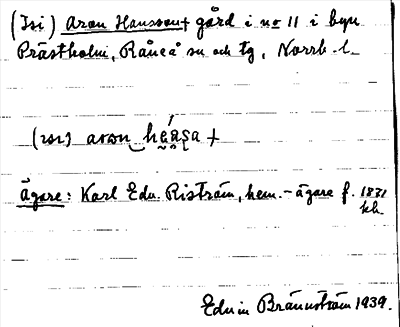 (Isi) Aron Hansson+ gård i no 11 i byn
Prästholm, Råneå sn och tg, Norrb. l.
aron
ägare: Karl Edv. Riström, hem.-ägare f. 1871
Edvin Brännström 1939.